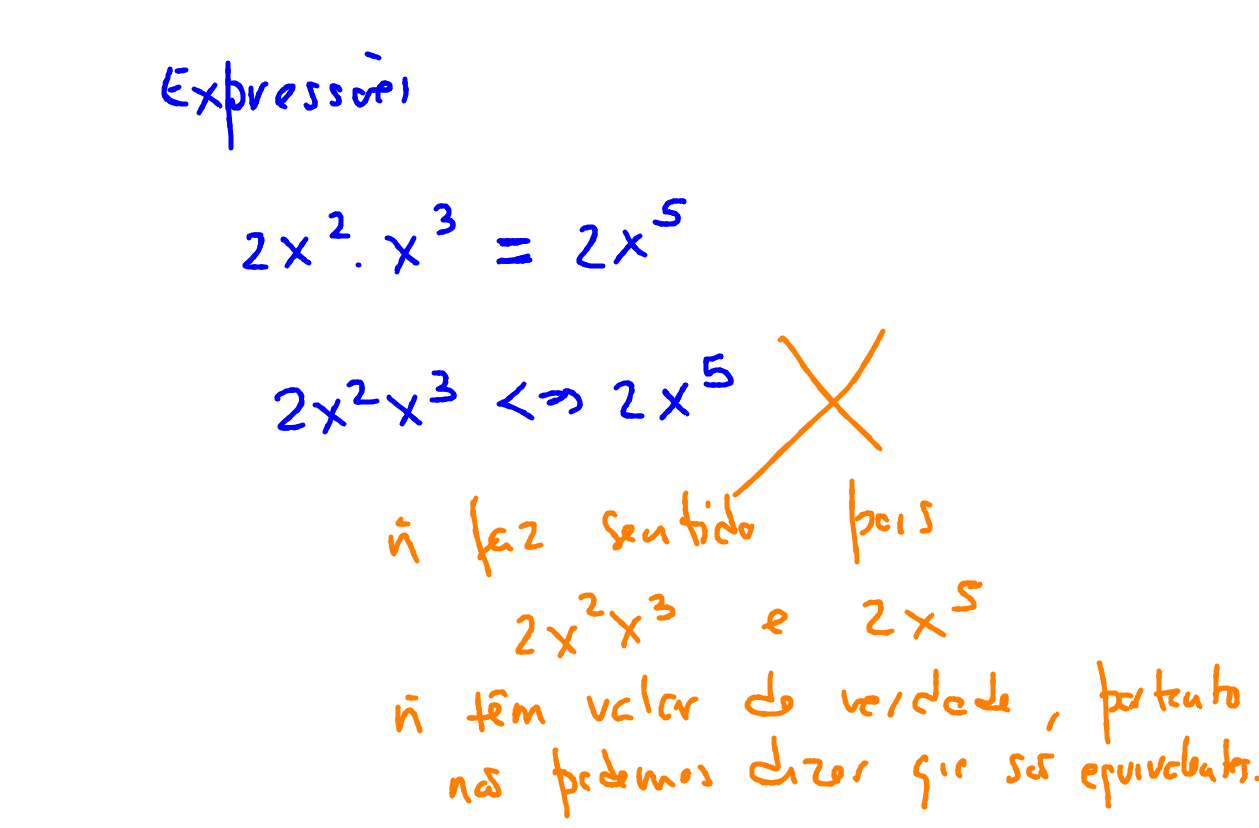 Expressões
2x². x³ = 2x⁵
2x²x³ <=> 2x⁵
ñ faz sentido pois
2x²x³ e 2x⁵
ñ têm valor de verdade, portanto
não podemos dizer que são equivalentes.